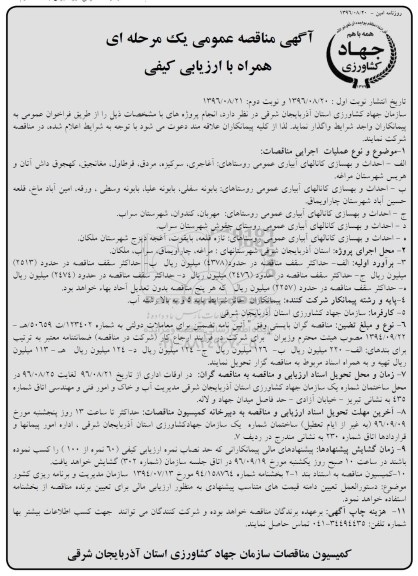 روزنامه امین - ۱۳۹۶/۰۸/۲۰
همه با هم
جهاد
کشاورزی
آگهی مناقصه عمومی یک مرحله ای
همراه با ارزیابی کیفی
تاریخ انتشار نوبت اول : ۱۳۹۶/۰۸/۲۰ و نوبت دوم: ۱۳۹۶/۰۸/۲۱
سازمان جهاد کشاورزی استان آذربایجان شرقی در نظر دارد، انجام پروژه های با مشخصات ذیل را از طریق فراخوان عمومی به
پیمانکاران واجد شرایط واگذار نماید. لذا از کلیه پیمانکاران علاقه مند دعوت می شود با توجه به شرایط اعلام شده، در مناقصه
شرکت نمایند.
۱-موضوع و نوع عملیات اجرایی مناقصات:
الف - احداث و بهسازی کانالهای آبیاری عمومی روستاهای: آغاجری، سرکیزه، مردق، قرطاول، مغانجیق، کهجوق داش آتان و
هریس شهرستان مراغه.
ب - احداث و بهسازی کانالهای آبیاری عمومی روستاهای: بابونه سفلی، بابونه علیا، بابونه وسطی ، ورقه، امین آباد ماخ، قلعه
حسین آباد شهرستان چاراویماق.
ج - احداث و بهسازی کانالهای آبیاری عمومی روستاهای: مهربان، کندوان، شهرستان سراب.
د - احداث و بهسازی کانالهای آبیاری عمومی روستای جلوش شهرستان سراب.
ه - احداث و بهسازی کانالهای آبیاری عمومی روستاهای: تازه قلعه، بایقوت، آغجه دیزج شهرستان ملکان.
۲- محل اجرای پروژه: استان آذربایجان شرقی شهرستانهای : مراغه، چاراویماق، سراب، ملکان.
۳- برآورد اولیه: الف- حداکثر سقف مناقصه در حدود(۴۳۷۸) میلیون ریال ب- حداکثر سقف مناقصه در حدود (۲۵۱۳)
میلیون ریال ج- حداکثر سقف مناقصه در حدود (۲۴۷۶) میلیون ریال د- حداکثر سقف مناقصه در حدود (۲۴۷۴) میلیون ریال
ه- حداکثر سقف مناقصه در حدود (۲۲۵۷) میلیون ریال که هر پنج مناقصه بدون تعدیل آحاد بهاء خواهد بود.
۴- پایه و رشته پیمانکار شرکت کننده: پیمانکاران حائز شرایط پایه ۵ و به بالا رشته آب.
۵- کارفرما: سازمان جهاد کشاورزی استان آذربایجان شرقی.
۶- نوع و مبلغ تضمین: مناقصه گران بایستی وفق " آئین نامه تضمین برای معاملات دولتی به شماره ۱۲۳۴۰۲/ت ۵۰۶۵۹هـ -
۱۳۹۴/۰۹/۲۲ مصوب هیئت محترم وزیران " برای شرکت در فرآیند ارجاع کار (شرکت در مناقصه) ضمانتنامه معتبر به ترتیب
برای بندهای: الف- ۲۲۰ میلیون ریال ب- ۱۲۶ میلیون ریال ج- ۱۲۴ میلیون ریال د- ۱۲۴ میلیون ریال هـ - ۱۱۳ میلیون
ریال تهیه و به همراه اسناد مربوط به مناقصه گزار تحویل نمایند.
۷- زمان و محل تحویل اسناد ارزیابی و مناقصه به مناقصه گران: در اوقات اداری از تاریخ ۹۶/۰۸/۲۱ لغایت ۹۶/۰۸/۲۵ در
محل ساختمان شماره یک سازمان جهاد کشاورزی استان آذربایجان شرقی مدیریت آب و خاک و امور فنی و مهندسی اتاق شماره
۴۳۵ به نشانی تبریز - خیابان آزادی - حد فاصل میدان جهاد و لاله.
۸- آخرین مهلت تحویل اسناد ارزیابی و مناقصه به دبیرخانه کمیسیون مناقصات: حداکثر تا ساعت ۱۳ روز پنجشنبه مورخ
۹۶/۰۹/۰۹ (به غیر از ایام تعطیل) ساختمان شماره یک سازمان جهادکشاورزی استان آذربایجان شرقی ، اداره امور پیمانها و
قراردادها اتاق شماره ۲۳۰ به نشانی مندرج در ردیف ۷.
۹- زمان گشایش پیشنهادها: پیشنهادهای مالی پیمانکارانی که حد نصاب نمره ارزیابی کیفی (۶۰ نمره از ۱۰۰ ) را کسب نموده
باشند در ساعت ۱۰ صبح روز یکشنبه مورخ ۹۶/۰۹/۱۹ در اتاق جلسه سازمان (شماره ۳۰۲) گشایش خواهد یافت.
۱۰-کمیسیون مناقصه به استناد بند ۱-۲ بخشنامه شماره ۹۴/۱۵۸۷۶۴ مورخ ۱۳۹۴/۰۷/۱۳ سازمان مدیریت و برنامه ریزی کشور
موضوع: دستورالعمل تعیین دامنه قیمت های متناسب پیشنهادی به منظور ارزیابی مالی برای تعیین برنده مناقصه از بخشنامه
استفاده خواهد نمود.
۱۱- هزینه چاپ آگهی: برعهده برندگان مناقصه خواهد بوده و شرکت کنندگان می توانند جهت کسب اطلاعات بیشتر بها
شماره تلفن: ۳۴۴۹۴۴۳۵-۰۴۱ تماس حاصل نمایند.
کمیسیون مناقصات سازمان جهاد کشاورزی استان آذربایجان شرقی